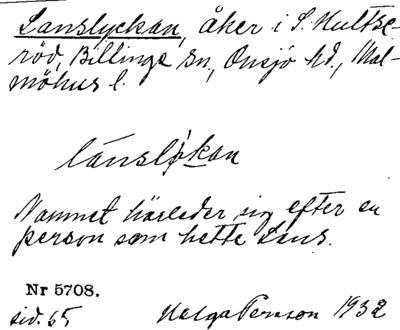 Lanslyckan, åker i S. Hultse-
röd, Billinge sn, Onsjö hd., Mal-
möhus l.
lánslỳkan
Namnet härleder sig efter en
person som hette Lans.
Nr 5708.
sid. 65. Helga Persson 1932